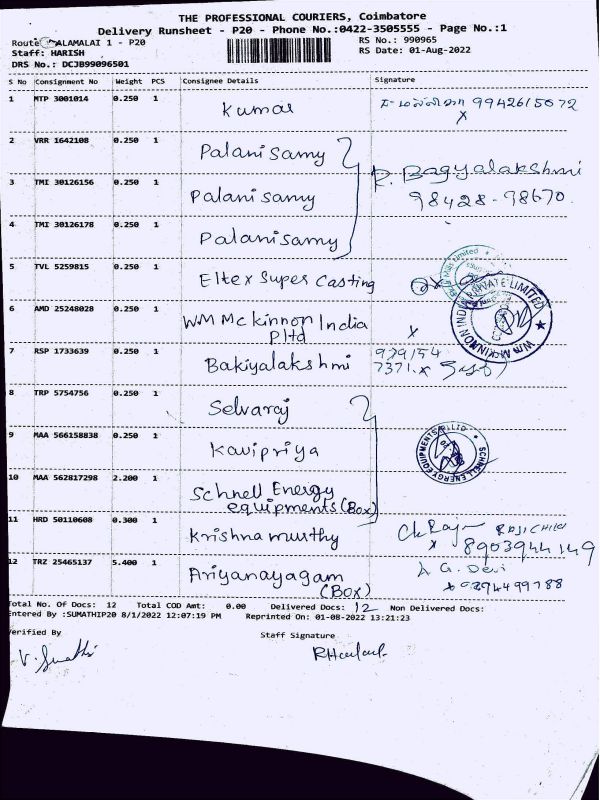 THE PROFESSIONAL COURIERS, Coimbatore
Delivery Runsheet - P20 - Phone No.:0422-3505555 - Page No.:1
Route: ALAMALAI 1 - P20 RS No.: 990965
Staff: HARISH RS Date: 01-Aug-2022
DRS No.: DCJB99096501
S No Consignment No Weight PCS Consignee Details Signature
1 MTP 3001014 0.250 1 Kumar 9942615072
x
2 VRR 1642108 0.250 1 Palanisamy
R. Bagyalakshmi
3 TMI 30126156 0.250 1 Palanisamy 98428-98670.
4 TMI 30126178 0.250 1 Palanisamy
5 TVL 5259815 0.250 1 Eltex Super Casting
6 AMD 25248028 0.250 1 WM Mckinnon India
Pltd x
WM MCKINNON INDIA PRIVATE LIMITED
7 RSP 1733639 0.250 1 Bakiyalakshmi 979154
7371.x
8 TRP 5754756 0.250 1 Selvaraj
9 MAA 566158838 0.250 1 Kavipriya
SCHNELL ENERGY EQUIPMENTS (P) LTD
10 MAA 562817298 2.200 1 Schnell Energy
equipments (Box)
11 HRD 50110608 0.300 1 Krishna murthy
x 8903944149
12 TRZ 25465137 5.400 1 Ariyanayagam G. Devi
(Box)
Total No. Of Docs: 12 Total COD Amt: 0.00 Delivered Docs: 12 Non Delivered Docs:
Entered By :SUMATHIP20 8/1/2022 12:07:19 PM Reprinted On: 01-08-2022 13:21:23
Verified By Staff Signature
V. Sumathi